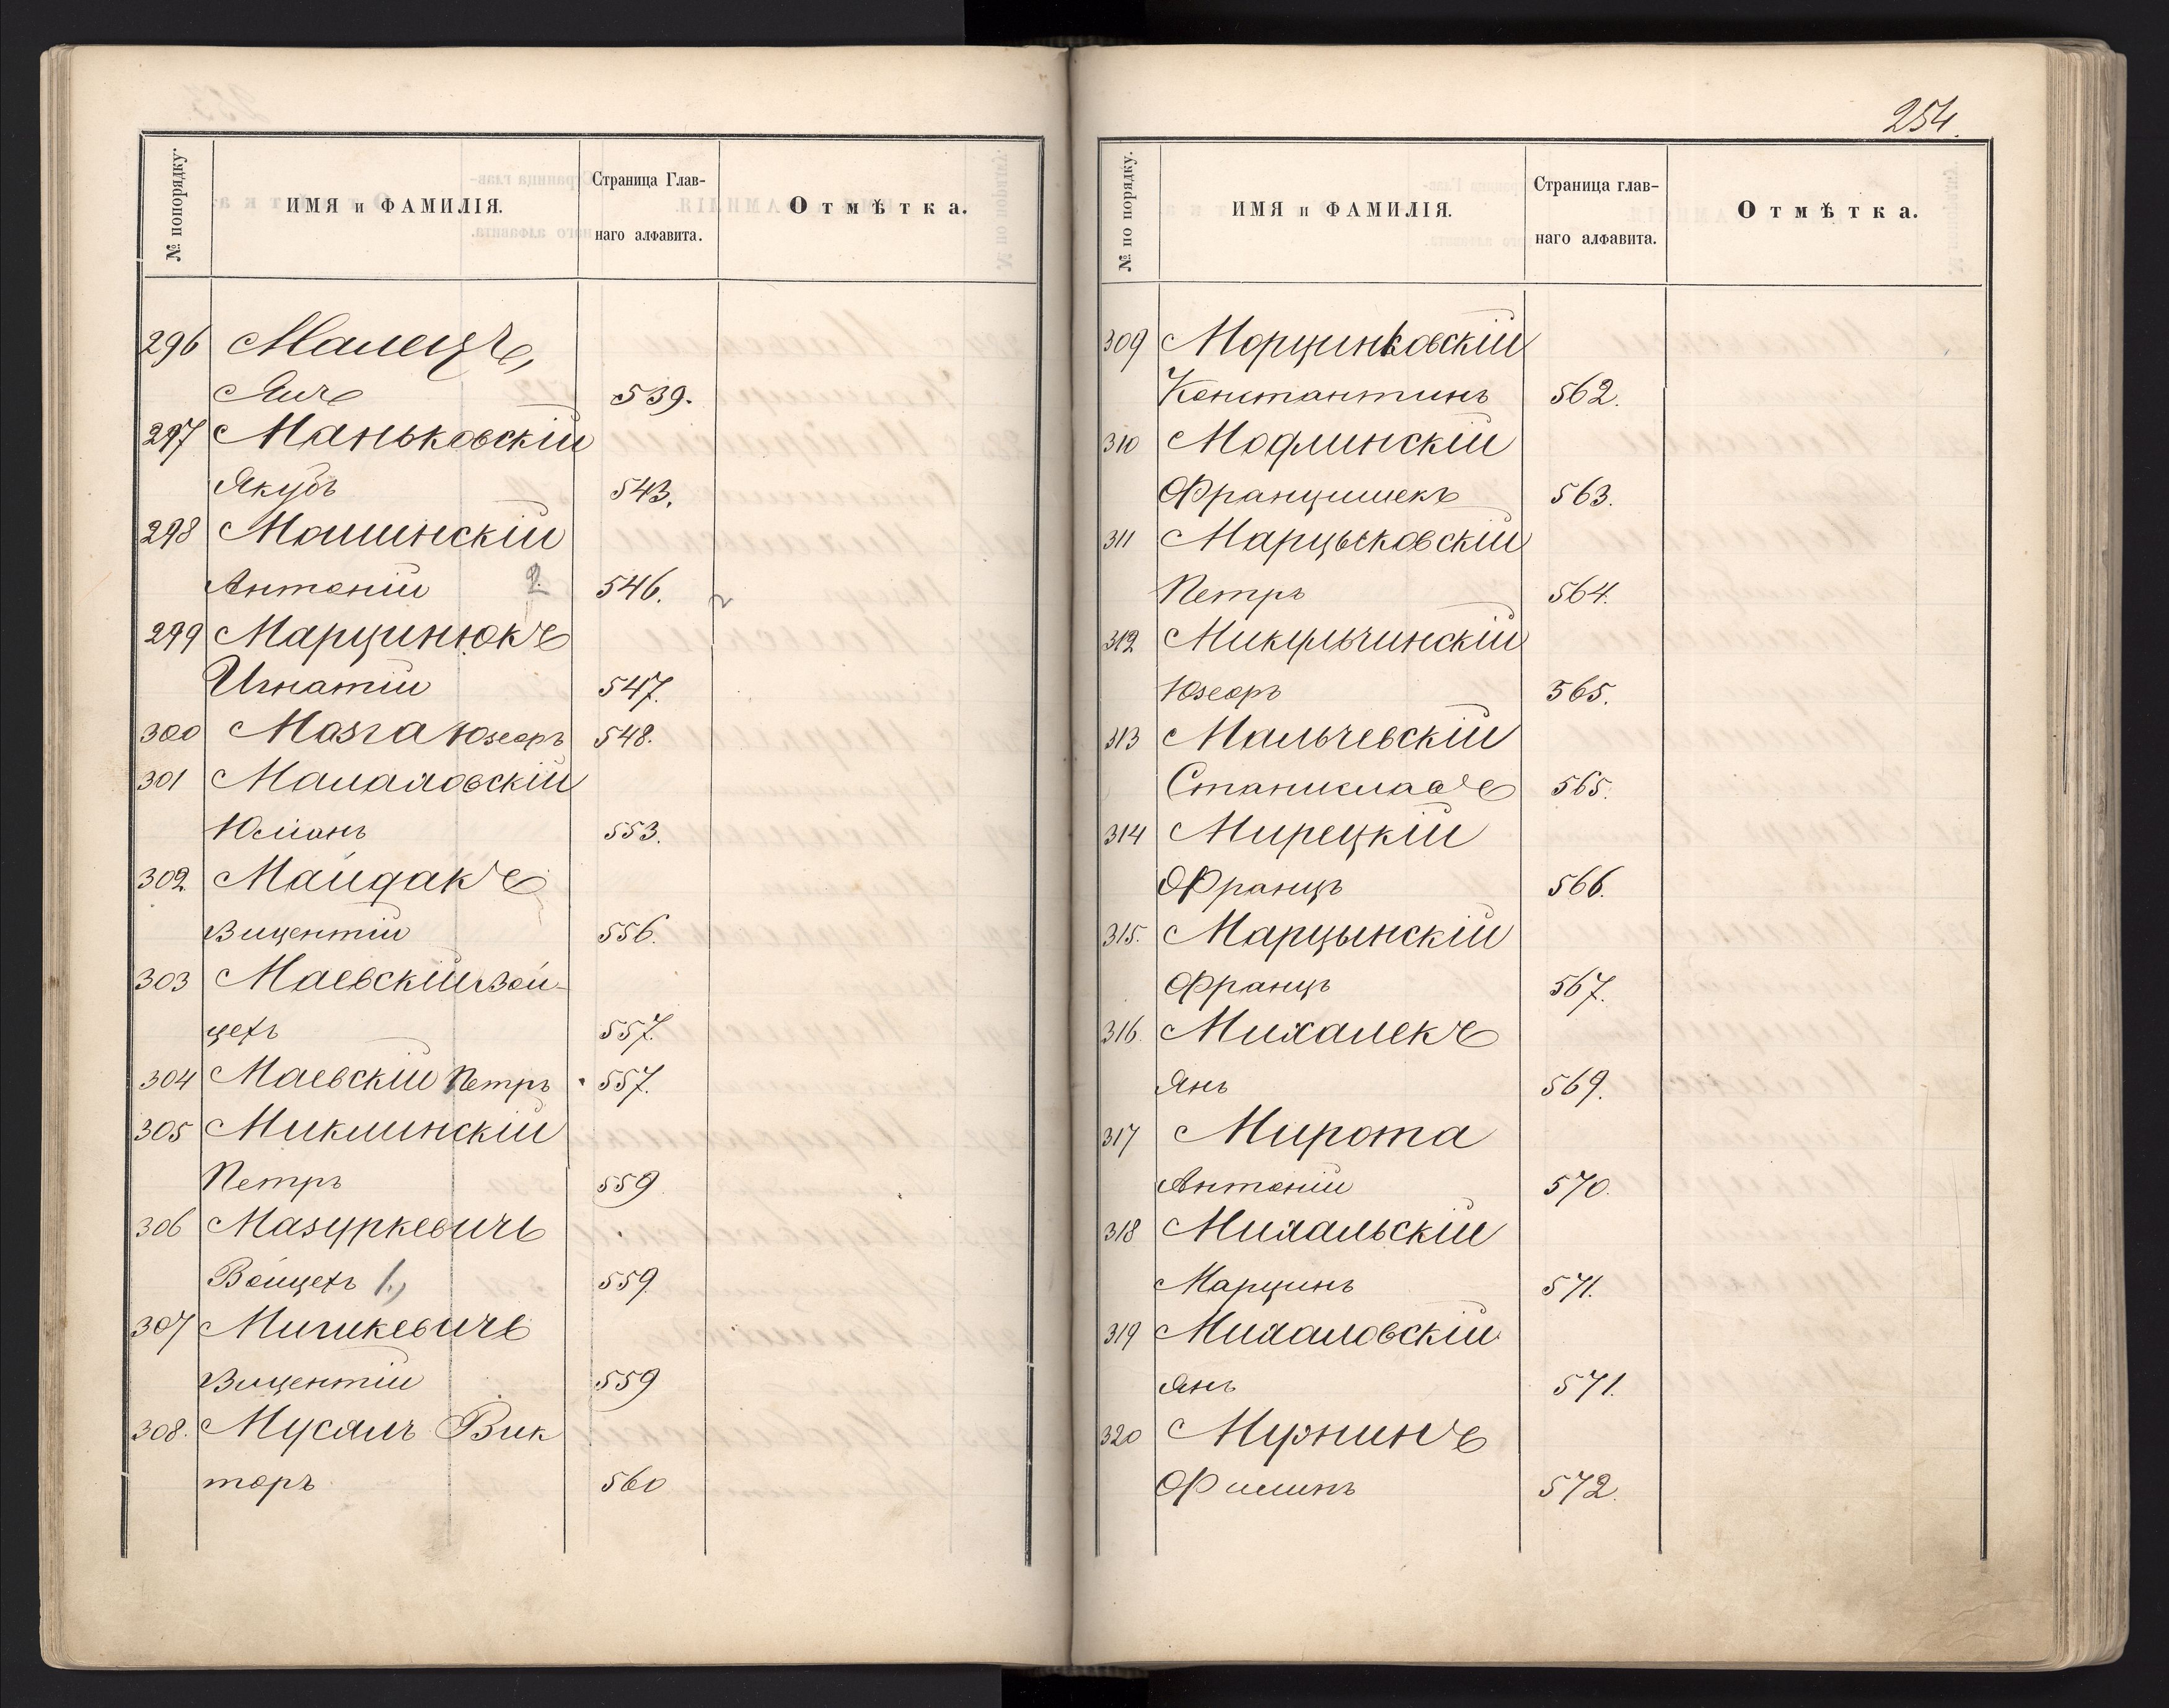 № попорядку.
ИМЯ и ФАМИЛІЯ.
Страница Глав-
наго алфавита.
Отмѣтка.
296 Малецъ,
Янъ 539.
297 Маньковскій
Якубъ 543.
298 Машинскій
Антоній 2. 546.
299 Марцинюкъ
Игнатій 547.
300 Мазга Юзефъ 548.
301
Юліанъ 553.
302 Майдакъ
Вицентій 556.
303 Маевскій Вой-
цехъ 557.
304 Маевскій Петръ 557.
305 Миклинскій
Петръ 559
306 Мазуркевичъ
Войцехъ 1.) 559
307
Вицентій 559
308. Мусялъ Вик
торъ 560
254.
№ по порядку.
ИМЯ и ФАМИЛІЯ.
Страница глав-
наго алфавита.
Отмѣтка.
309 Морцинковскій
Константинъ 562.
310
Францишекъ 563.
311 Марцысковскій
Петръ 564.
312 Микульчинскій
Юзефъ 565.
313 Мальчевскій
Станиславъ 565.
314 Мирецкій
Францъ 566.
315. Марцынскій
Францъ 567.
316. Михалекъ
Янъ 569.
317 Мирота
Антоній 570.
318 Михальскій
Марцинъ 571.
319 Михаловскій
Янъ 571.
320
Филипъ 572.